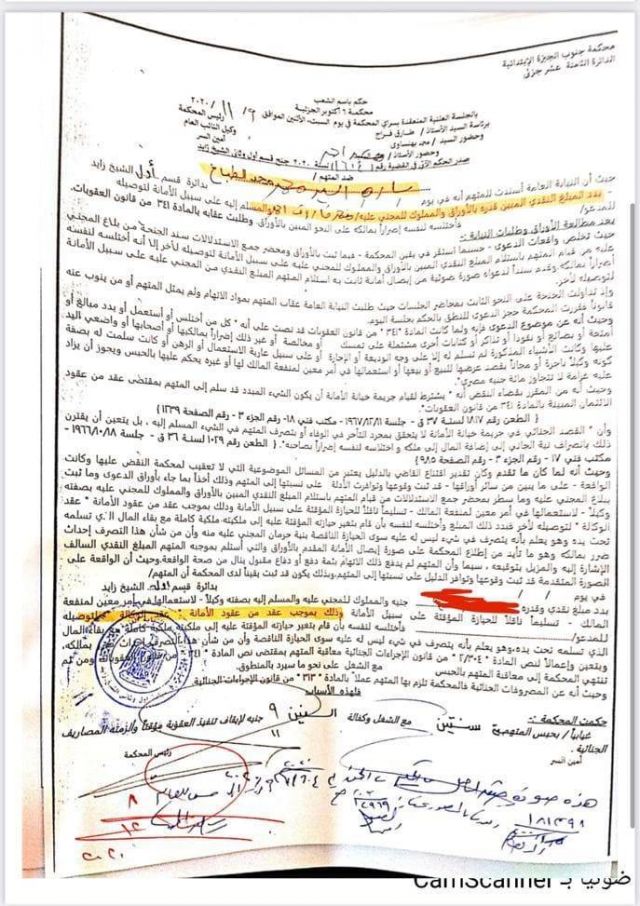 محكمة جنوب الجيزة الإبتدائية
الدائرة الثامنة عشر جزئى
حكم باسم الشعب
محكمة ٦ أكتوبر الجزئية
بالجلسة العلنية المنعقدة بسراي المحكمة في يوم السبت، الأثنين الموافق ٩ / ١١ / ٢٠٢٠
برئاسة السيد الأستاذ / طارق فراج رئيس المحكمة
وحضور السيد / مجد بهنساوى وكيل النائب العام
وحضور الأستاذ / أمين السر
صدر الحكم الآتى فى القضية رقم لسنة ٢٠٢٠ جنح قسم أول وثانى الشيخ زايد
ضد المتهم /
حيث أن النيابة العامة أسندت للمتهم أنه في يوم بدائرة قسم أول الشيخ زايد
- بدد المبلغ النقدي المبين قدره بالأوراق والمملوك للمجني عليه / والمسلم إليه على سبيل الأمانة لتوصيله
للمدعو / وأختلسه لنفسه إضراراً بمالكه على النحو المبين بالأوراق. وطلبت عقابه بالمادة ٣٤١ من قانون العقوبات.
بعد مطالعة الأوراق وطلبات النيابة :-
حيث تخلص واقعات الدعوى - حسبما استقر في يقين المحكمة - فيما ثبت بالأوراق ومحضر جمع الاستدلالات سند الجنحة من بلاغ المجني
عليه من قيام المتهم باستلام المبلغ النقدي المبين بالأوراق والمملوك للمجني عليه على سبيل الأمانة لتوصيله لآخر إلا أنه أختلسه لنفسه
أضراراً بمالكه. وقدم سنداً لدعواه صورة ضوئية من إيصال أمانة ثابت به استلام المتهم المبلغ النقدي من المجني عليه على سبيل الأمانة
لتوصيله لآخر.
وإذ تداولت الجنحة على النحو الثابت بمحاضر الجلسات حيث طلبت النيابة العامة عقاب المتهم بمواد الاتهام ولم يمثل المتهم أو من ينوب عنه
قانوناً فقررت المحكمة حجز الدعوى للنطق بالحكم بجلسة اليوم.
وحيث أنه عن موضوع الدعوى فإنه ولما كانت المادة "٣٤١" من قانون العقوبات قد نصت على أنه "كل من أختلس أو أستعمل أو بدد مبالغ أو
أمتعة أو بضائع أو نقوداً أو تذاكر أو كتابات أخرى مشتملة على تمسك أو مخالصة أو غير ذلك إضراراً بمالكيها أو أصحابها أو واضعي اليد
عليها وكانت الأشياء المذكورة لم تسلم له إلا على وجه الوديعة أو الإجارة أو على سبيل عارية الاستعمال أو الرهن أو كانت سلمت له بصفة
كونه وكيلاً بأجرة أو مجاناً بقصد عرضها للبيع أو بيعها أو استعمالها في أمر معين لمنفعة المالك لها أو غيره يحكم عليها بالحبس ويجوز أن يزاد
عليه غرامة لا تتجاوز مائة جنيه مصري".
وحيث أنه من المقرر بقضاء النقض أنه "يشترط لقيام جريمة خيانة الأمانة أن يكون الشيء المبدد قد سلم إلى المتهم بمقتضى عقد من عقود
الائتمان المبينة بالمادة ٣٤١ من قانون العقوبات".
{ الطعن رقم ١٨١٧ لسنة ٣٧ ق - جلسة ١٩٦٧/١٢/١١ - مكتب فني ١٨ - رقم الجزء ٣ - رقم الصفحة ١٢٣٩ }
وأن " القصد الجنائي في جريمة خيانة الأمانة لا يتحقق بمجرد التأخر في الوفاء أو بتصرف المتهم في الشيء المسلم إليه، بل يتعين أن يقترن
ذلك بانصراف نية الجاني إلى إضافة المال إلى ملكه و اختلاسه لنفسه إضراراً بصاحبه". { الطعن رقم ١٠٢٩ لسنة ٣٦ ق - جلسة ١٩٦٦/١٠/١٨ -
مكتب فني ١٧ - رقم الجزء ٣ - رقم الصفحة ٩٨٥ }
وحيث أنه لما كان ما تقدم وكان تقدير اقتناع القاضي بالدليل يعتبر من المسائل الموضوعية التي لا تعقيب لمحكمة النقض عليها وكانت
الواقعة - على ما يبين من سائر أوراقها - قد ثبت وقوعها وتوافرت الأدلة على نسبتها إلى المتهم وذلك أخذاً بما جاء بأوراق الدعوى وما ثبت
ببلاغ المجني عليه وما سطر بمحضر جمع الاستدلالات من قيام المتهم باستلام المبلغ النقدي المبين بالأوراق والمملوك للمجني عليه بصفته
وكيلاً - لاستعمالها في أمر معين لمنفعة المالك - تسليماً ناقلاً للحيازة المؤقتة على سبيل الأمانة وذلك بموجب عقد من عقود الأمانة " عقد
الوكالة " لتوصيله لآخر فبدد ذلك المبلغ وأختلسه لنفسه بأن قام بتغير حيازته المؤقتة إلى ملكيته ملكية كاملة مع بقاء المال الذي تسلمه
تحت يده وهو يعلم بأنه يتصرف في شيء ليس له عليه سوى الحيازة الناقصة بنية حرمان المجني عليه منه وأن من شأن هذا التصرف إحداث
ضرر بمالكه وهو ما تأيد من إطلاع المحكمة على صورة إيصال الأمانة المقدم بالأوراق والتي أستلم بموجبه المتهم المبلغ النقدي السالف
الإشارة إليه والمزيل بتوقيعه، سيما وأن المتهم لم يدفع ذلك الاتهام بثمة دفع أو دفاع مقبول ينال من صحة الواقعة. وحيث أن الواقعة على
الصورة المتقدمة قد ثبت وقوعها وتوافر الدليل على نسبتها إلى المتهم، وبذلك يكون قد ثبت يقيناً لدى المحكمة أن المتهم /
في يوم / / بدائرة قسم أول الشيخ زايد
بدد مبلغ نقدي وقدره جنيه والمملوك للمجني عليه والمسلم إليه بصفته وكيلاً - لاستعمالها في أمر معين لمنفعة
المالك - تسليماً ناقلاً للحيازة المؤقتة على سبيل الأمانة وذلك بموجب عقد من عقود الأمانة " عقد الوكالة " لتوصيله
للمدعو / وأختلسه لنفسه بأن قام بتغير حيازته المؤقتة إلى ملكيته ملكية كاملة مع بقاء المال
الذي تسلمه تحت يده، وهو يعلم بأنه يتصرف في شيء ليس له عليه سوى الحيازة الناقصة وأن من شأن بمالكه.
ويتعين وإعمالاً لنص المادة "٢/٣٠٤" من قانون الإجراءات الجنائية معاقبة المتهم بمقتضى نص المادة "٣٤١" من قانون العقوبات ومن ثم
تنتهي المحكمة إلى معاقبة المتهم بالحبس مع الشغل على نحو ما سيرد بالمنطوق.
وحيث أنه عن المصروفات الجنائية فالمحكمة تلزم بها المتهم عملاً بالمادة "٣١٣" من قانون الإجراءات الجنائية.
فلهذه الأسباب
حكمت المحكمة :-
غيابياً / بحبس المتهم سنتين مع الشغل وكفالة جنيه لإيقاف تنفيذ العقوبة مؤقتاً والزمته المصاريف
الجنائية.
أمين السر رئيس المحكمة
هذه صورة
ضوئيا بـ CamScanner